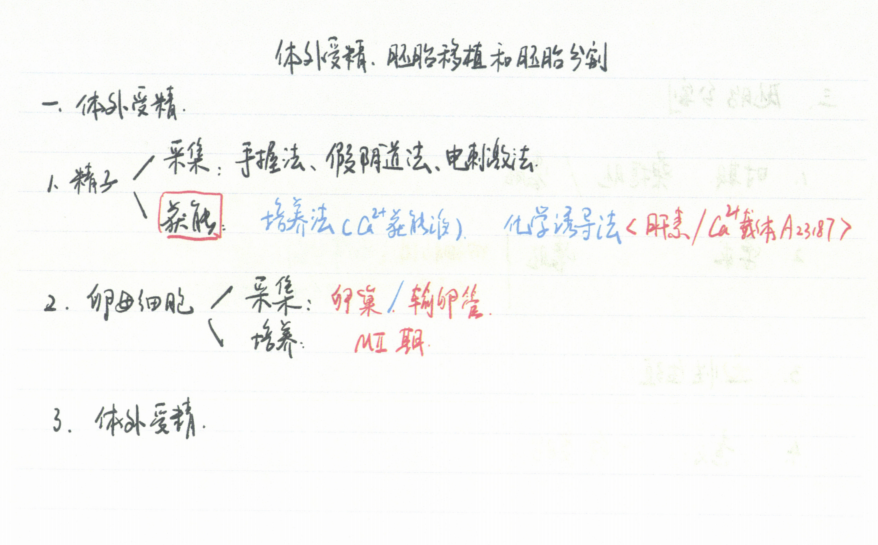 体外受精、胚胎移植和胚胎分割
一. 体外受精.
1. 精子 采集: 手握法、假阴道法、电刺激法.
获能: 培养法(Ca²⁺获能液). 化学诱导法<肝素/Ca²⁺载体A23187>
2. 卵母细胞 采集: 卵巢/输卵管.
培养: MII期.
3. 体外受精.